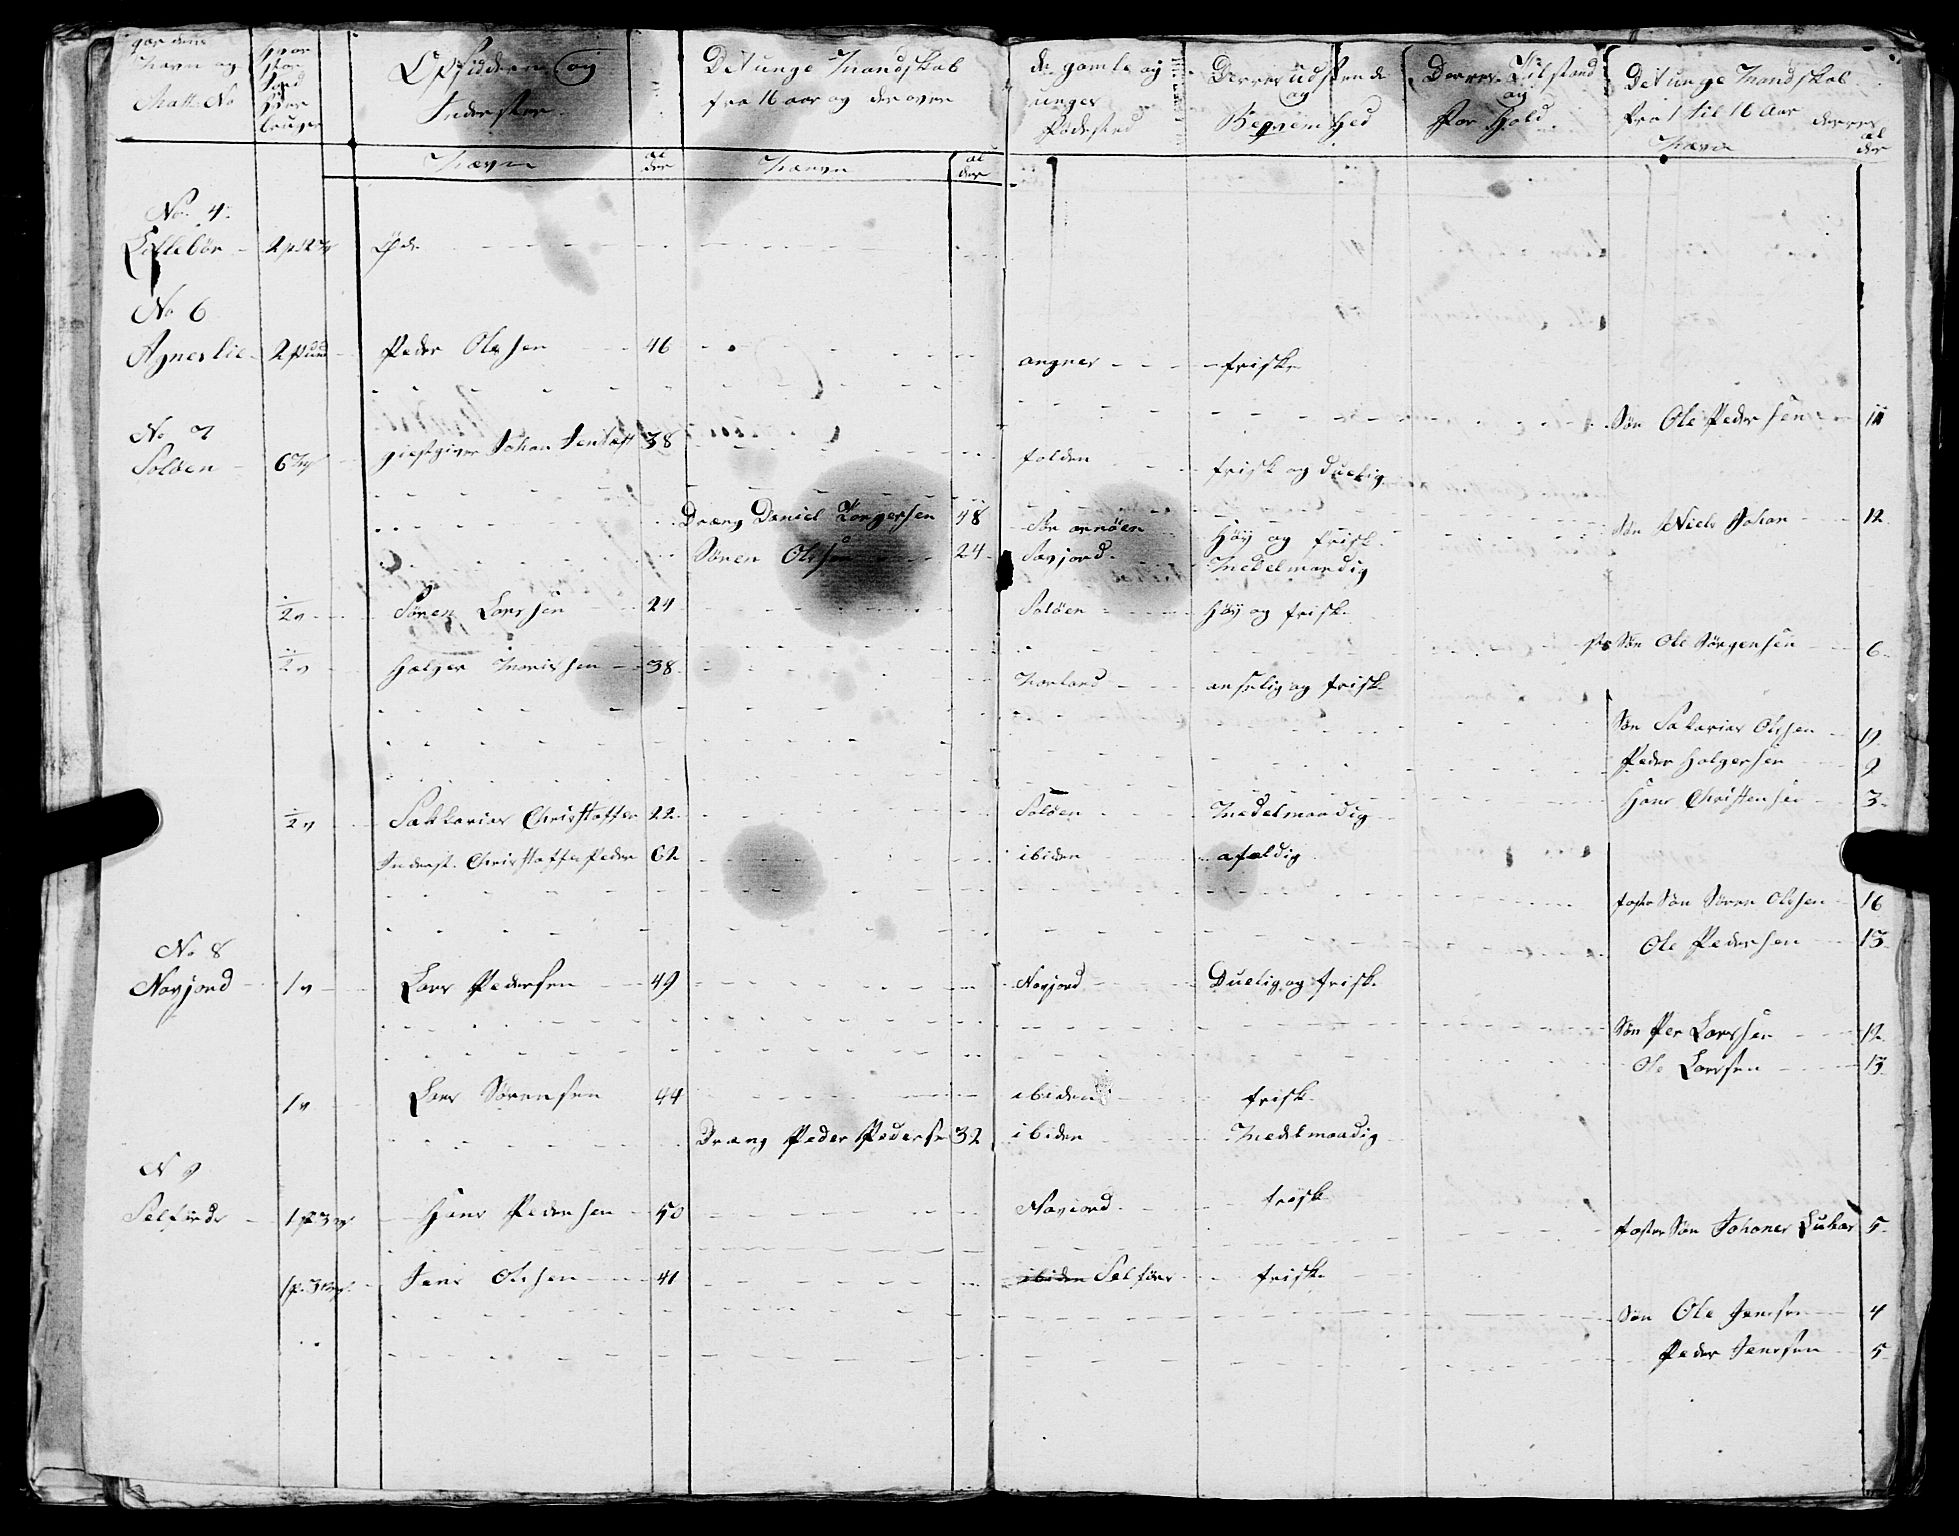 gaardens
Navn og
Matt. No
hvor
stor
Jord
hver
bruger
Opsidderne og
Inderster.
Det unge Mandskab
fra 16 aar og der over
de gamle og
unges
Fødested
Derres udseende
og
Beqvemhed
Derres Tilstand
og
For Hold.
Det unge Mandskab
fra 1 til 16 Aar derres
Navn
al
der
Navn
al
der
Navn
al
der
No. 4.
Lillebør 2 p 12 Øde
No 6
Agneslie 2 pund Peder Olssen 46 angnes friske
Søn Ole Pedersen 11
No 7
Soløen 6 giestgiver Johan 38 folden frisk og Duelig
Dreng Daniel 48 Sør arnøen Høy og frisk
Søn Niels Johan 12
Søren Olssen 24 Savjord Medelmaadig
1/2 v Søren Larssen 24 Soløen Høy og frisk
Søn Ole Jørgensen 6
1/2 v Holger Morissen 38 Norland anselig og frisk
Søn Sakarias Olssen
Peder Holgersen 9
Hans Christensen 3
1/2 v Sakkarias Christoffer 22 Soløen Medelmaadig
Inderst. Christoffer Peder 62 ibiden afældig
foster Søn Søren Olssen 16
Ole Pedersen 13
No 8
Navjord 1 v Lars Pedersen 49 Navjord Duelig og frisk
Søn Per Larssen 12
Ole Larssen 13
1 v Lars Sørensen 44 ibiden frisk
Dreng Peder Pederse 32 ibiden Medelmaadig
N 9
Selførde 1 p 3 Hans Pedersen 50 Naviord frisk
foster Søn Johanes Lukas 5
1 p. 3 Jens Olssen 41 ibiden Selføre friske
Søn Ole Jensen 4
Peder Jensen 5